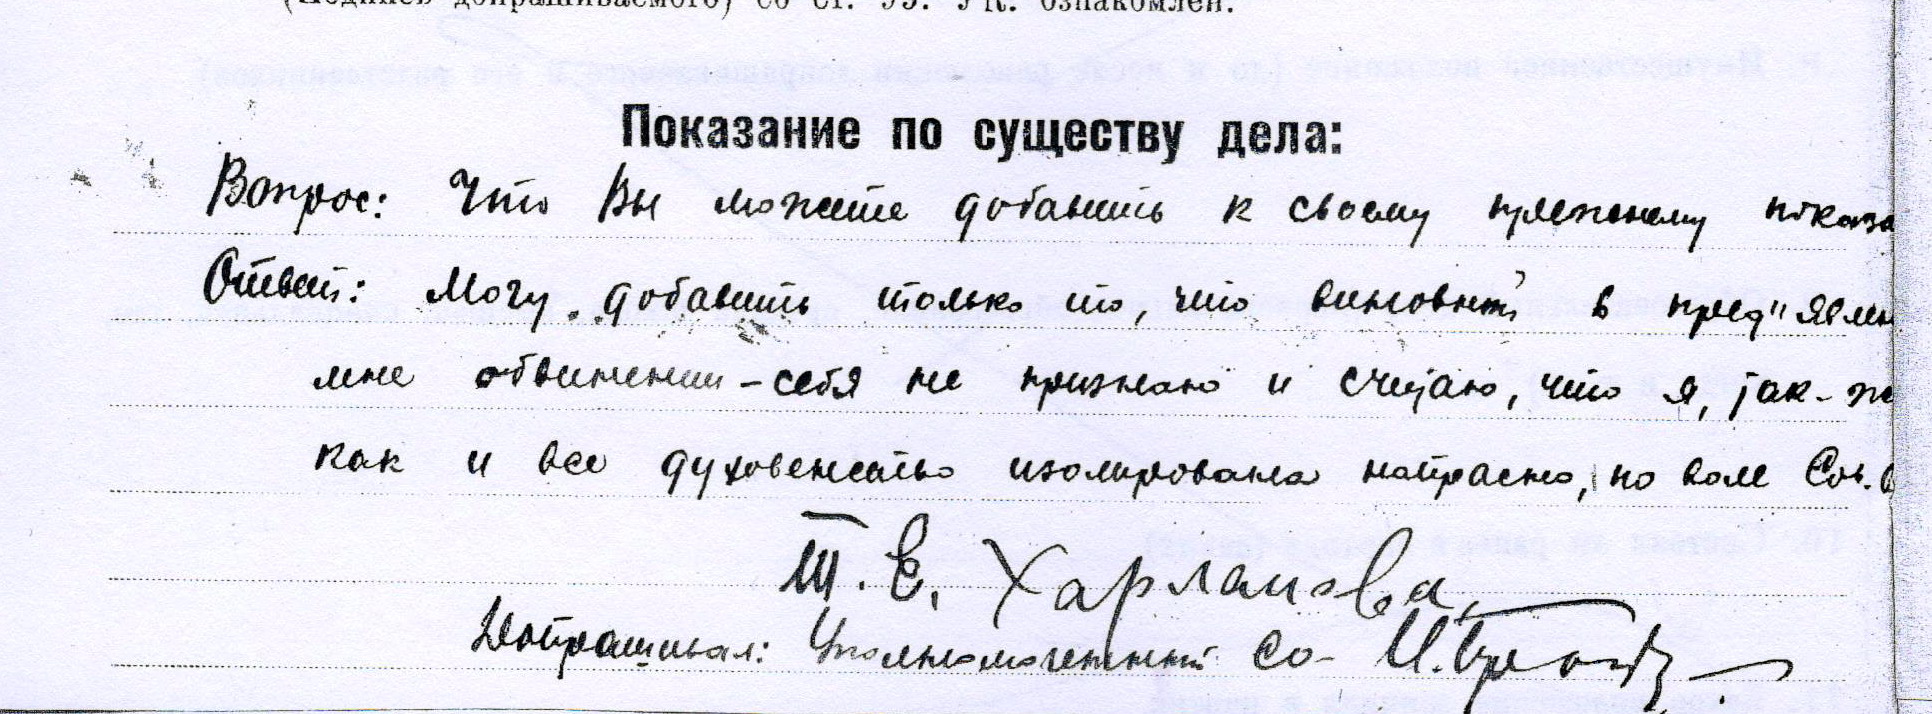 (Подпись допрашиваемого) со ст. 95. УК. ознакомлен.
Показание по существу дела:
Вопрос: Что Вы можете добавить к своему прежнему показа
Ответ: Могу добавить только то, что виновным в пред"явлен
мне обвинении - себя не признаю и считаю, что я, так-же
как и все духовенство изолирована напрасно, по воле Сов. в
Т. Е. Харламова.
Допрашивал: Уполномоченный СО -